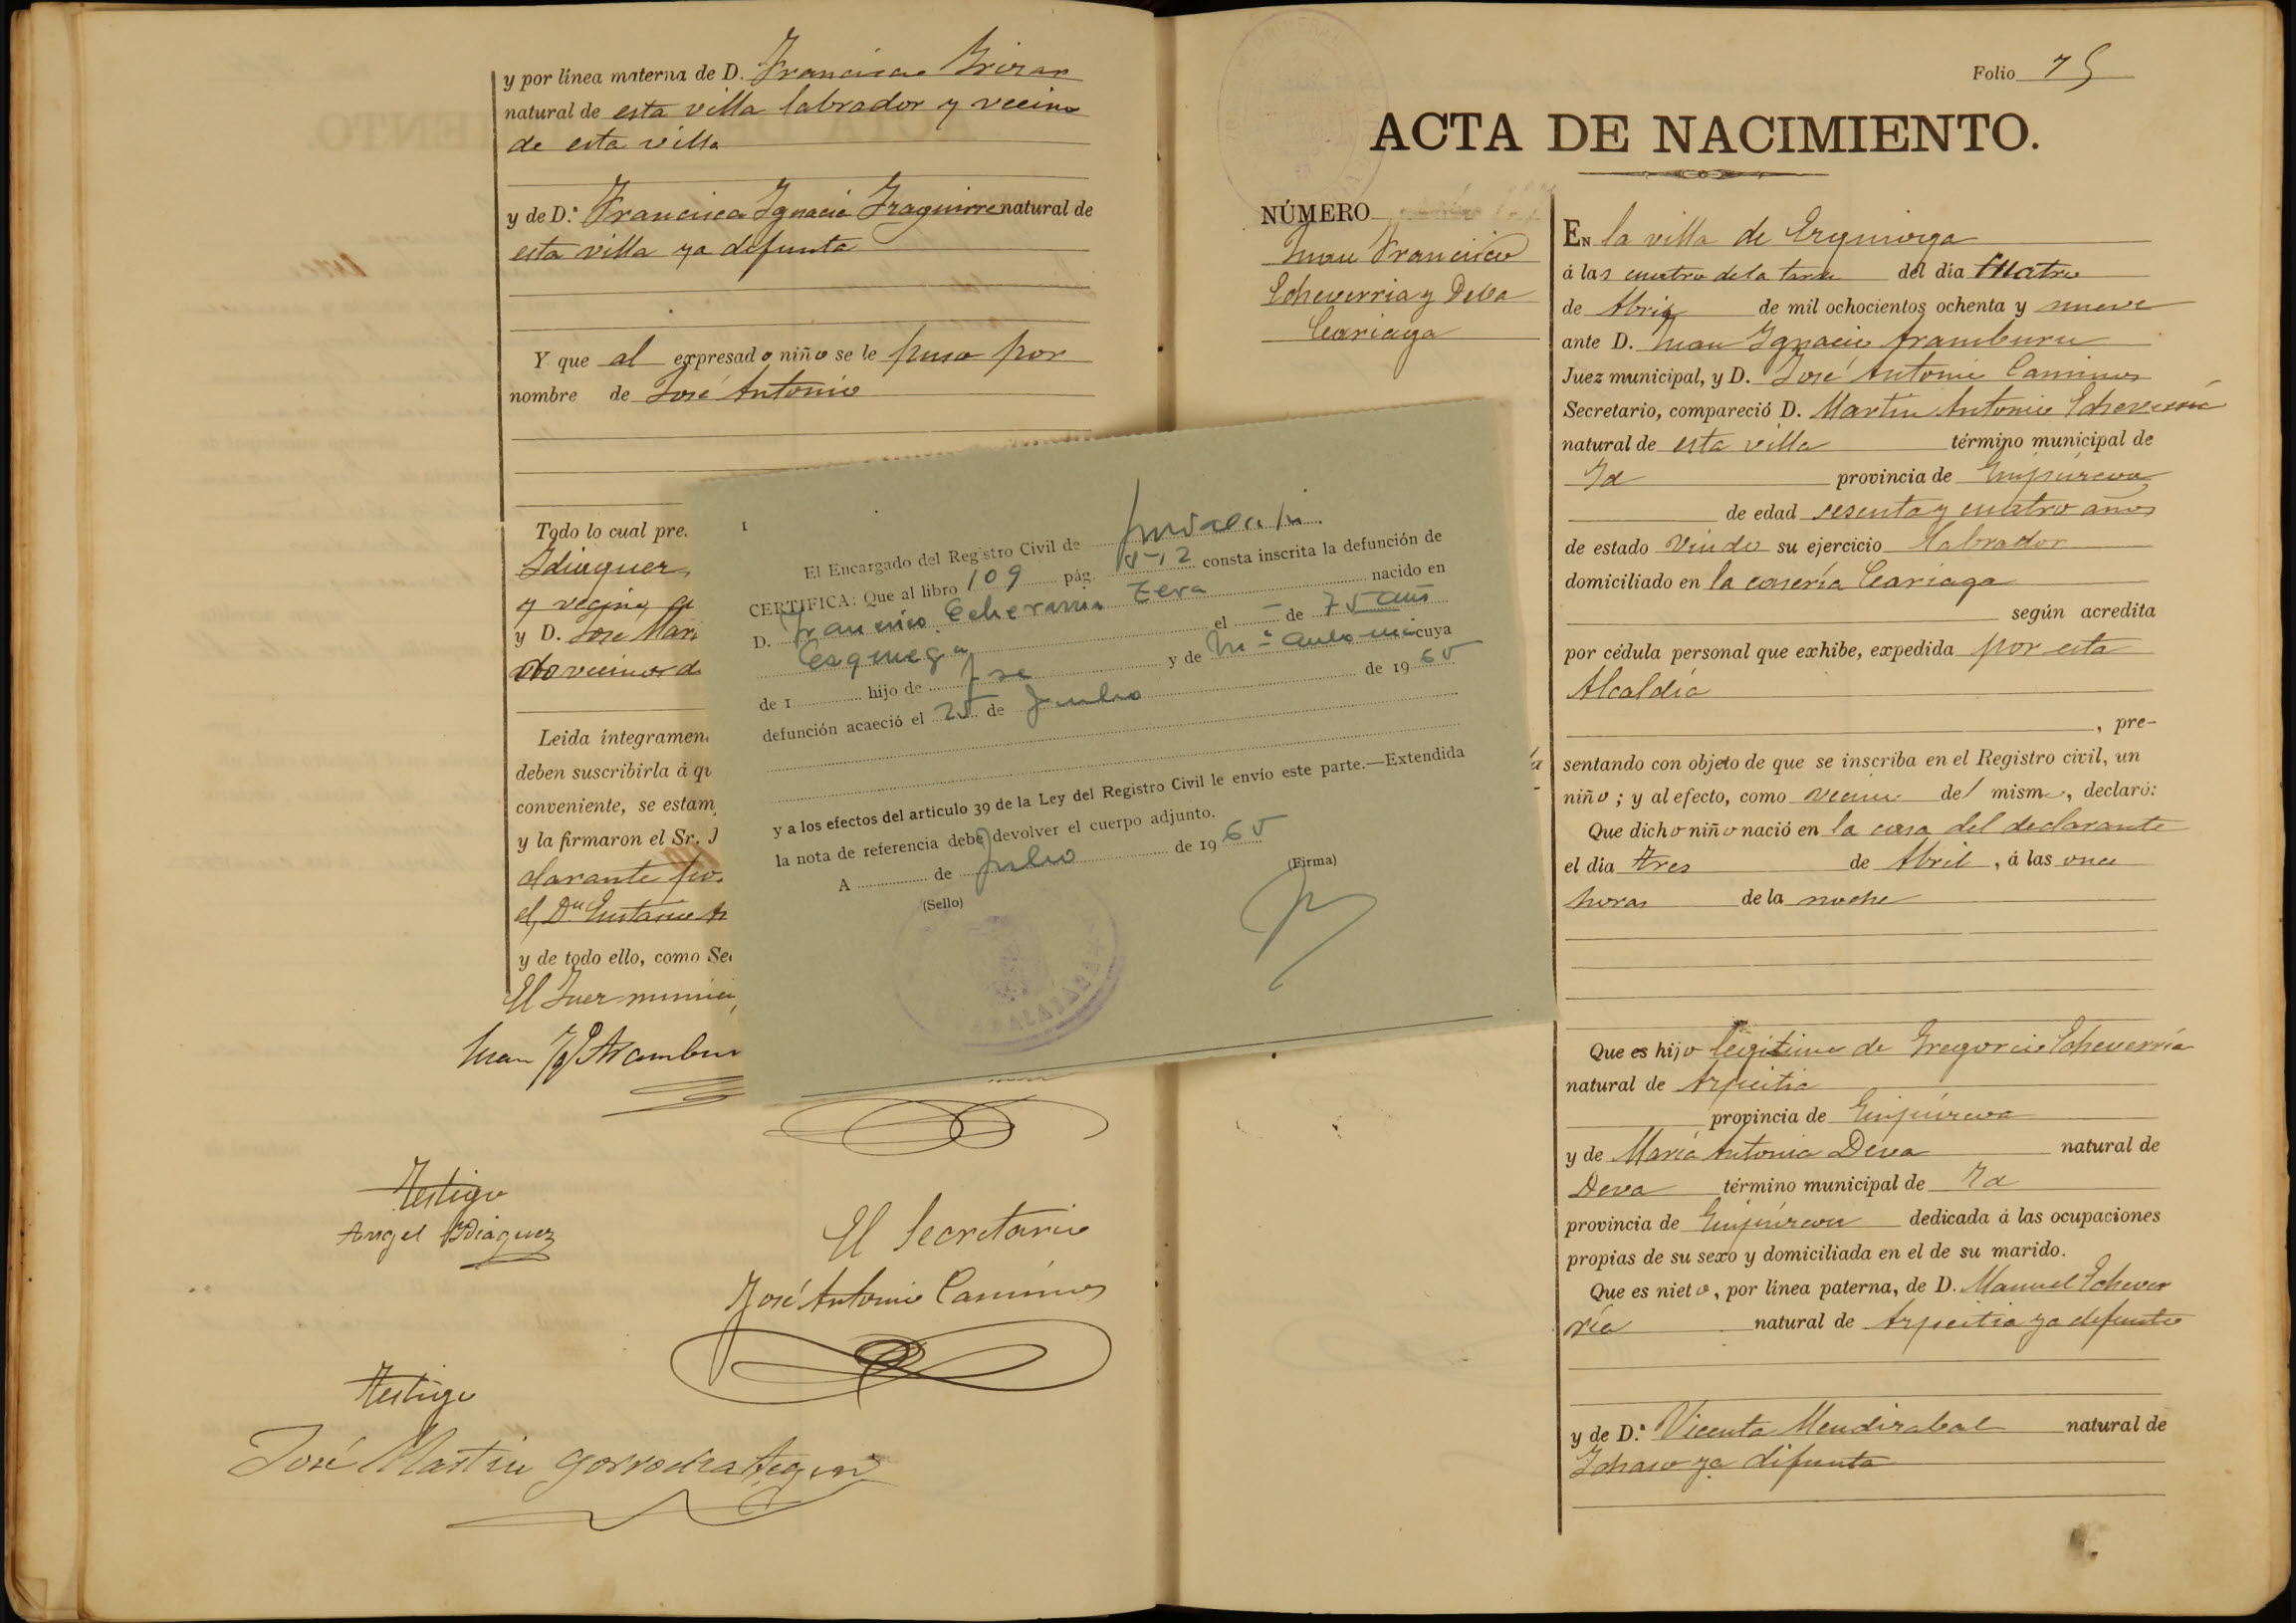 y por línea materna de D. Francisco
natural de esta villa labrador y vecino
de esta villa
y de D.ª Francisca Ignacia Izaguirre natural de
esta villa ya defunta
Y que al expresado niño se le puso por
nombre de José Antonio
Todo lo cual pre
y D. José Mari
Leida íntegramen
deben suscribirla á qu
conveniente, se estam
y la firmaron el Sr. J
clarante
y de todo ello, como Se
El Juez munici
Juan Ig. Aramburu
Testigo
Angel Ydiaquez
El Secretario
José Antonio Caminos
Testigo
José Martin Gorrochategui
1
El Encargado del Registro Civil de
CERTIFICA: Que al libro 109 pág. consta inscrita la defunción de
D. Francisco Echeverria nacido en
el de 75 años
de 1 hijo de José y de Mª Antonia cuya
defunción acaeció el 25 de Junio de 1965
y a los efectos del artículo 39 de la Ley del Registro Civil le envío este parte.—Extendida
la nota de referencia debe devolver el cuerpo adjunto.
A de Julio de 1965
(Sello)
(Firma)
Folio 75
ACTA DE NACIMIENTO.
NÚMERO
Juan Francisco
Echeverria y Deva
Cariaga
EN la villa de Ezquioga
á las cuatro de la tarde del día cuatro
de Abril de mil ochocientos ochenta y nueve
ante D. Juan Ignacio Aramburu
Juez municipal, y D. José Antonio Caminos
Secretario, compareció D. Martin Antonio Echeverria
natural de esta villa término municipal de
Id provincia de Guipúzcoa
de edad sesenta y cuatro años
de estado Viudo su ejercicio labrador
domiciliado en la casería Cariaga
según acredita
por cédula personal que exhibe, expedida por esta
Alcaldía
, pre-
sentando con objeto de que se inscriba en el Registro civil, un
niño; y al efecto, como vecino del mismo, declaró:
Que dicho niño nació en la casa del declarante
el día tres de Abril, á las once
horas de la noche
Que es hijo legitimo de Gregorio Echeverria
natural de Azpeitia
provincia de Guipúzcoa
y de María Antonia Deva natural de
Deva término municipal de Id
provincia de Guipúzcoa dedicada á las ocupaciones
propias de su sexo y domiciliada en el de su marido.
Que es nieto, por línea paterna, de D. Manuel Echever
ría natural de Azpeitia ya defunto
y de D.ª Vicenta Mendizabal natural de
Ichaso ya difunta